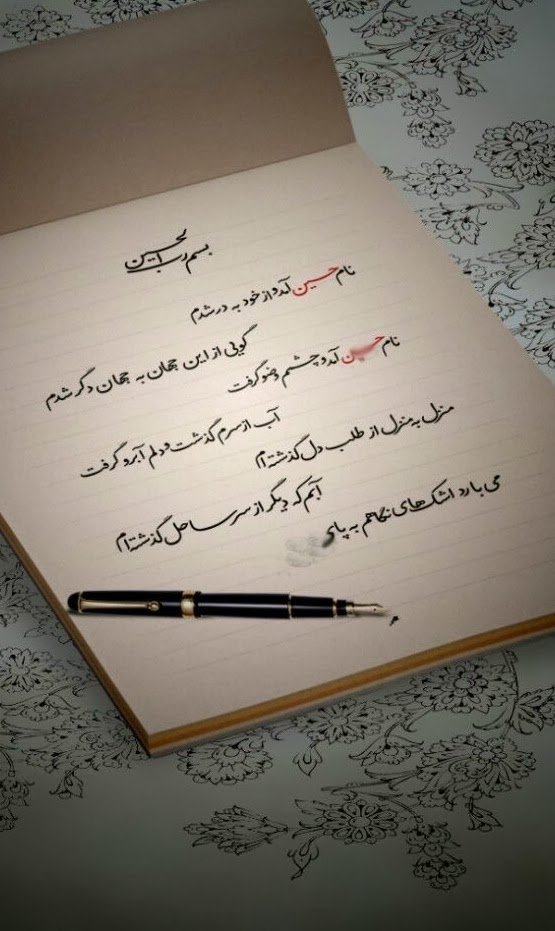 بسم رب الحسین
نام حسین آمد و از خود به در شدم
گویی از این جهان به جهان دگر شدم
نام حسین آمد و چشمم وضو گرفت
آب از سرم گذشت و دلم آبرو گرفت
منزل به منزل از طلب دل گذشته‌ام
آبم که دیگر از سر ساحل گذشته‌ام
می بارد اشک‌های نگاهم به پای